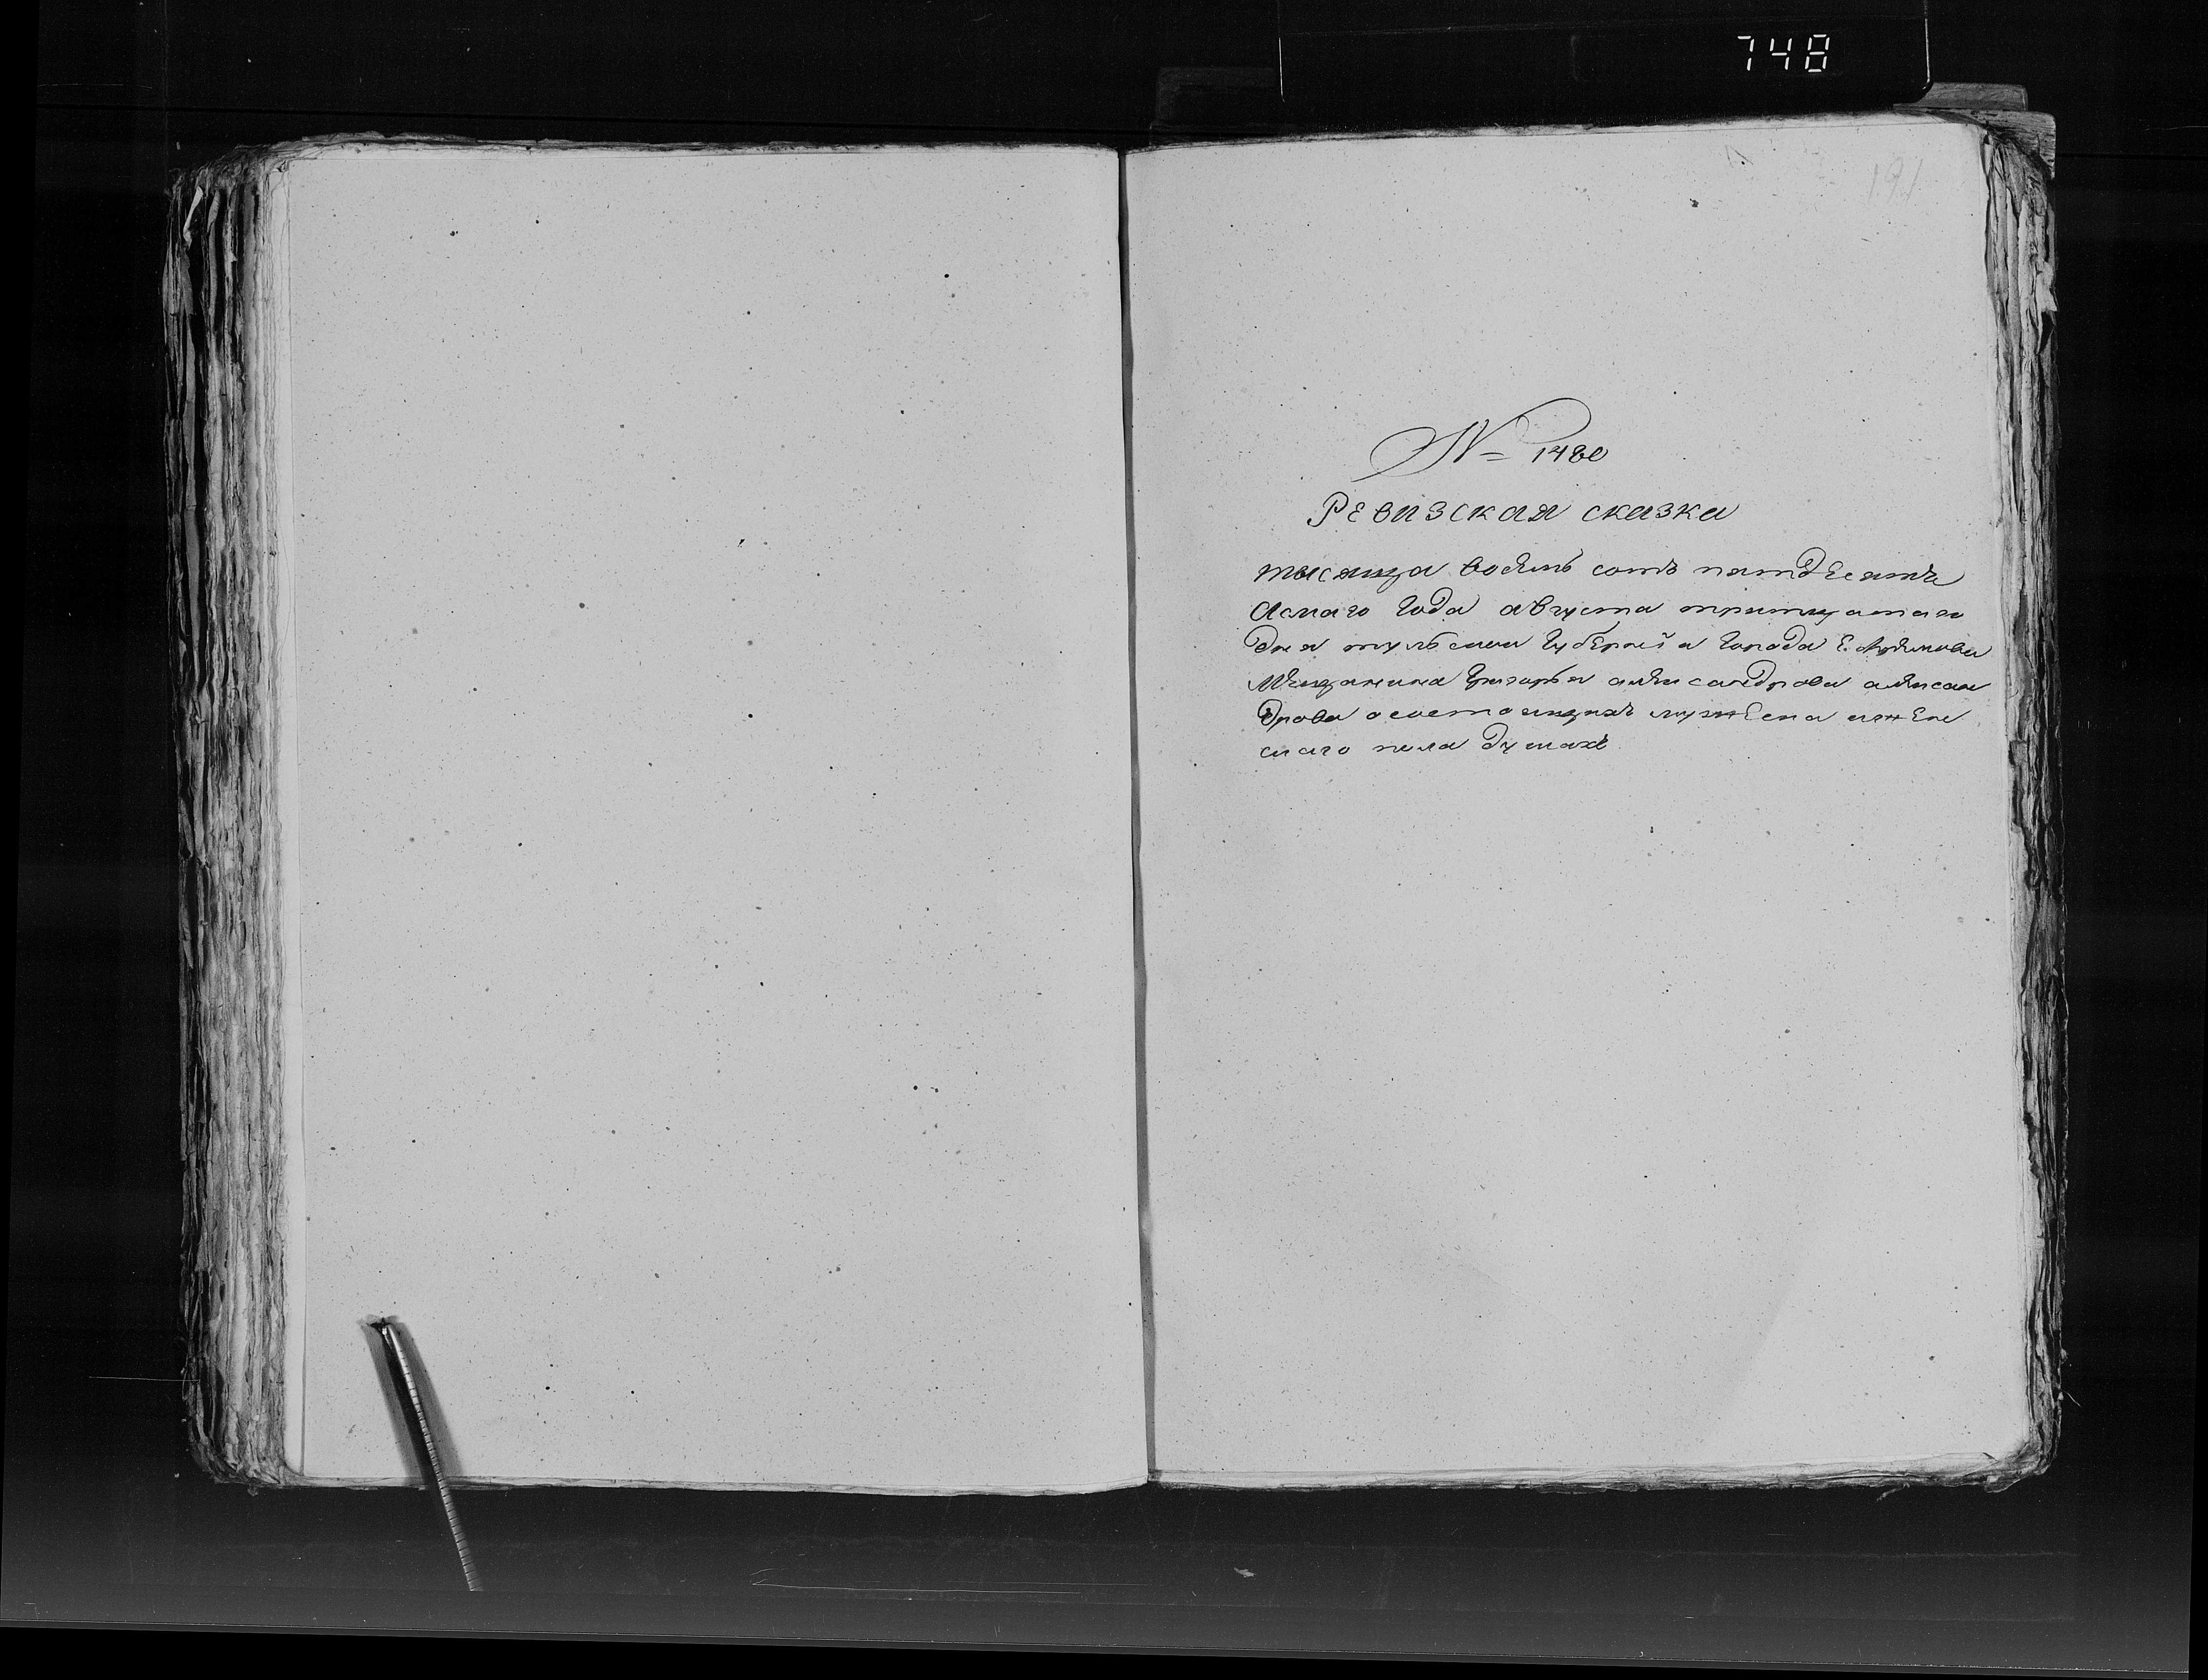 748
191
N= 1480
Ревизская сказка
тысяща восемь сотъ пятдесятъ
асмаго года августа притцатаго
дня тульской Губерніи Города Ефримова
Мещанина Григорья алексапдрова алексан
дрова о состоящихъ мужеска и жен
скаго пола душахъ